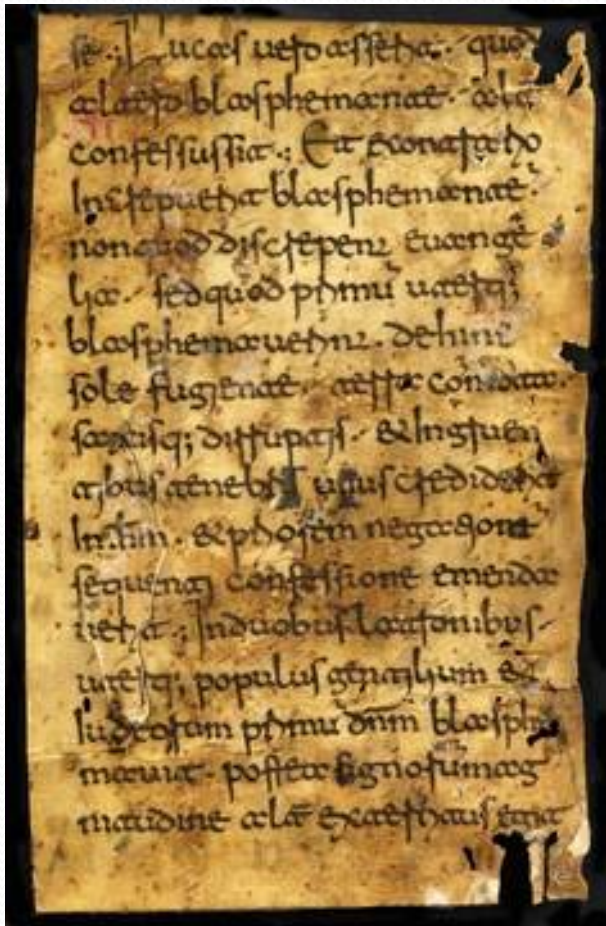 se·; Lucas uero asserit· quod
altero blasphemante· alt
confessus sit·; Et econtrario
Increpuerit blasphemante·
non quod discrepent euange
lia· sed quod primu uterq;
blasphemauerint· dehinc
sole fugiente· terra comota·
saxisq; disruptis· & Ingruen
tibus tenebris unus crediderit
In ihm· & priorem negationē
sequenti confessione emenda
uerit·; In duobus latronibus
uterq; populus gentilium &
Iudeorum primu dnm blasphe
mauit· postea signorum mag
nitudine alt exterritus egit